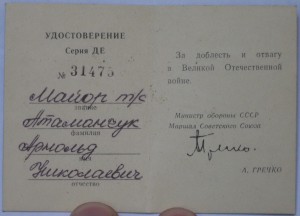 УДОСТОВЕРЕНИЕ
Серия ДЕ
№ 31475
Майор т/с
звание
Атамансук
фамилия
Арнольд
имя
Николаевич
отчество
За доблесть и отвагу
в Великой Отечественной
войне.
Министр обороны СССР
Маршал Советского Союза
А. ГРЕЧКО